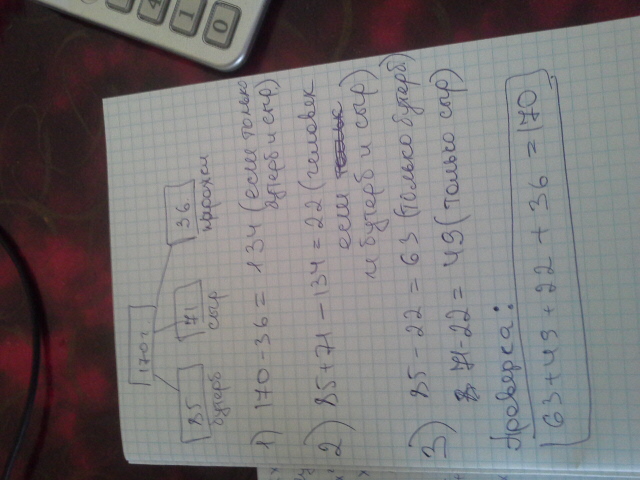 170 г.
85 71 36
бутерб сыр пирожки
1) 170 - 36 = 134 (если только
бутерб и сыр)
2) 85 + 71 - 134 = 22 (человек
ели
и бутерб и сыр)
3) 85 - 22 = 63 (только бутерб.)
71 - 22 = 49 (только сыр)
Проверка:
63 + 49 + 22 + 36 = 170
4 1 0